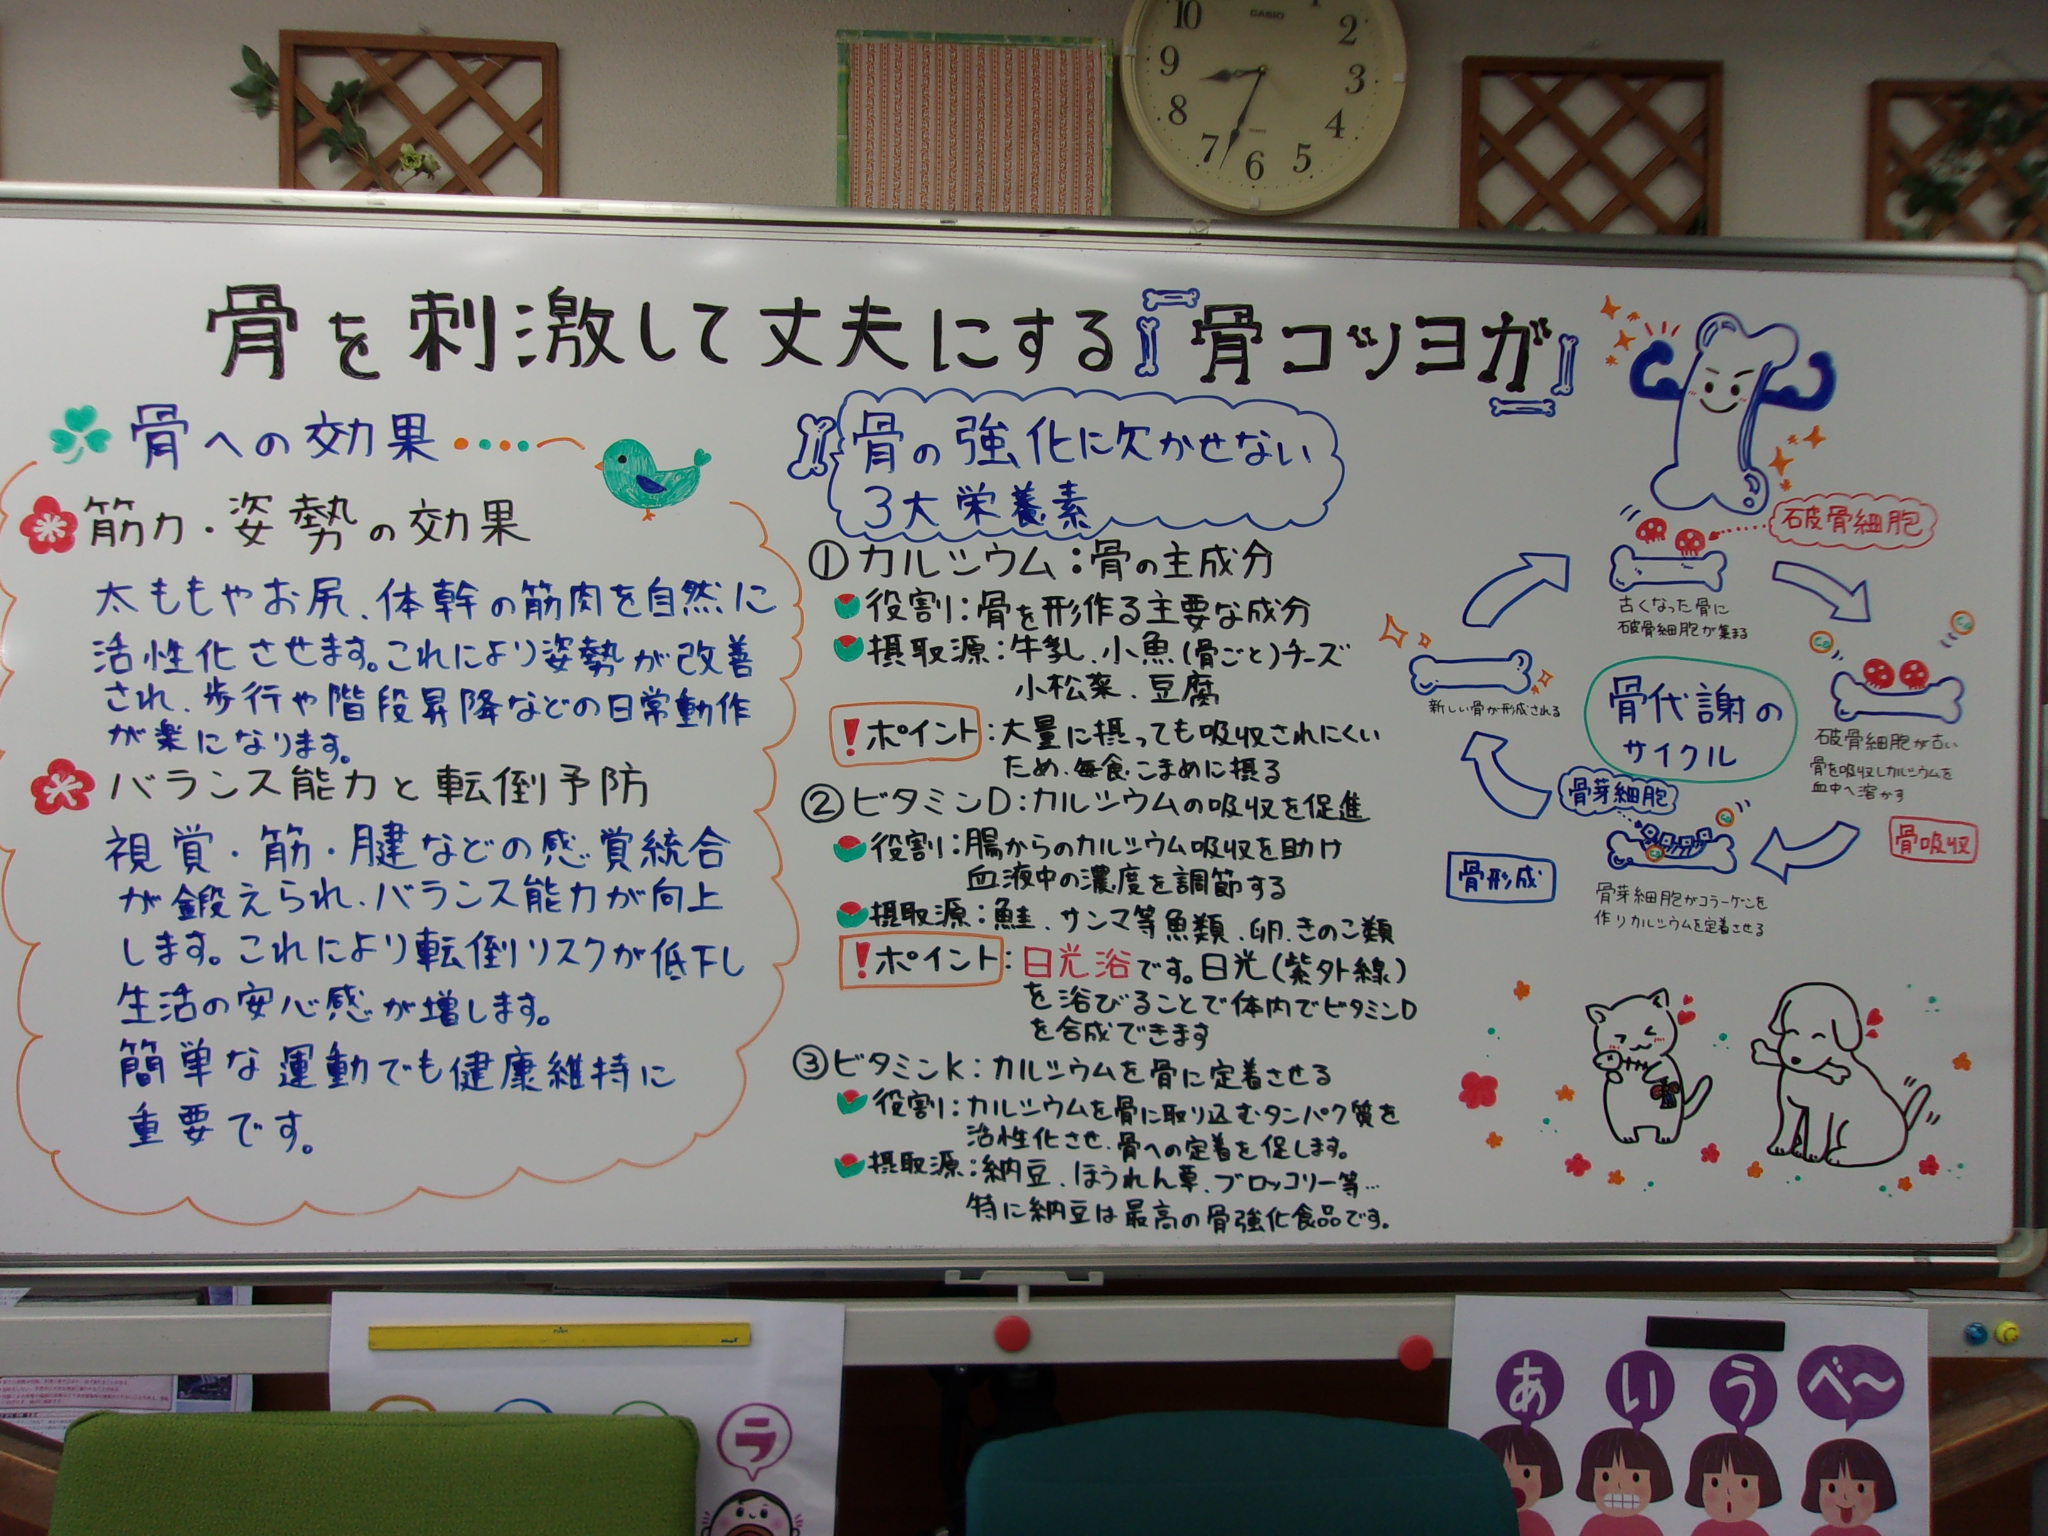 10
9
8
7
6
5
4
3
2
CASIO
QUARTZ
骨を刺激して丈夫にする『骨コツヨガ』
骨への効果
筋力・姿勢の効果
太ももやお尻、体幹の筋肉を自然に
活性化させます。これにより姿勢が改善
され、歩行や階段昇降などの日常動作
が楽になります。
バランス能力と転倒予防
視覚・筋・腱などの感覚統合
が鍛えられ、バランス能力が向上
します。これにより転倒リスクが低下し
生活の安心感が増します。
簡単な運動でも健康維持に
重要です。
骨の強化に欠かせない
3大栄養素
①カルシウム:骨の主成分
役割:骨を形作る主要な成分
摂取源:牛乳、小魚(骨ごと)チーズ
小松菜、豆腐
!ポイント:大量に摂っても吸収されにくい
ため、毎食、こまめに摂る
②ビタミンD:カルシウムの吸収を促進
役割:腸からのカルシウム吸収を助け
血液中の濃度を調節する
摂取源:鮭、サンマ等魚類、卵、きのこ類
!ポイント:日光浴です。日光(紫外線)
を浴びることで体内でビタミンD
を合成できます
③ビタミンK:カルシウムを骨に定着させる
役割:カルシウムを骨に取り込むタンパク質を
活性化させ、骨への定着を促します。
摂取源:納豆、ほうれん草、ブロッコリー等…
特に納豆は最高の骨強化食品です。
破骨細胞
古くなった骨に
破骨細胞が集まる
Ca
Ca
骨代謝の
サイクル
新しい骨が形成される
破骨細胞が古い
骨を吸収しカルシウムを
血中へ溶かす
骨吸収
骨芽細胞
Ca
Ca
骨形成
骨芽細胞がコラーゲンを
作りカルシウムを定着させる
ラ
あ
い
う
べ〜